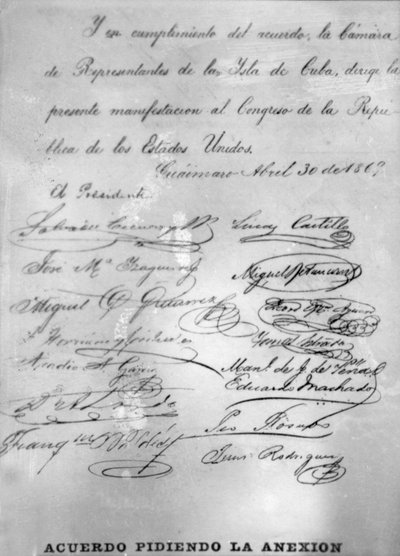 Y en cumplimiento del acuerdo, la Cámara
de Representantes de la Isla de Cuba, dirige la
presente manifestacion al Congreso de la Repú-
blica de los Estados Unidos.
Guáimaro Abril 30 de 1869
El Presidente
Salvador Cisneros y B
Lucas Castillo
José Mª Izaguirre
Miguel Betancourt
Miguel G Gutierrez
Tomás Estrada
Arcadio S. García
Man.l de J. de
Eduardo Machado
Pio Rosado
Jesus Rodriguez
ACUERDO PIDIENDO LA ANEXION